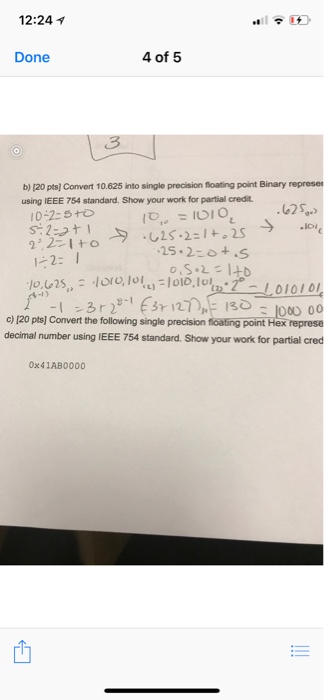 12:24
Done
4 of 5
3
b) [20 pts] Convert 10.625 into single precision floating point Binary represe
using IEEE 754 standard. Show your work for partial credit.
10÷2=5+0
10₁₀ = 1010₂
.625₁₀
5÷2=2+1
.625·2=1+.25
→
.101
2÷2=1+0 →
.25·2=0+.5
1÷2= 1
0.5·2=1+0
10.625₁₀ = 1010,101₍₂₎ = 1010,101₍₂₎·2⁰ = 1.010101
-1 = 3+2⁸⁻¹ (3+127)₁₀ = 130 = 1000 00
c) [20 pts] Convert the following single precision floating point Hex represe
decimal number using IEEE 754 standard. Show your work for partial cred
0x41AB0000